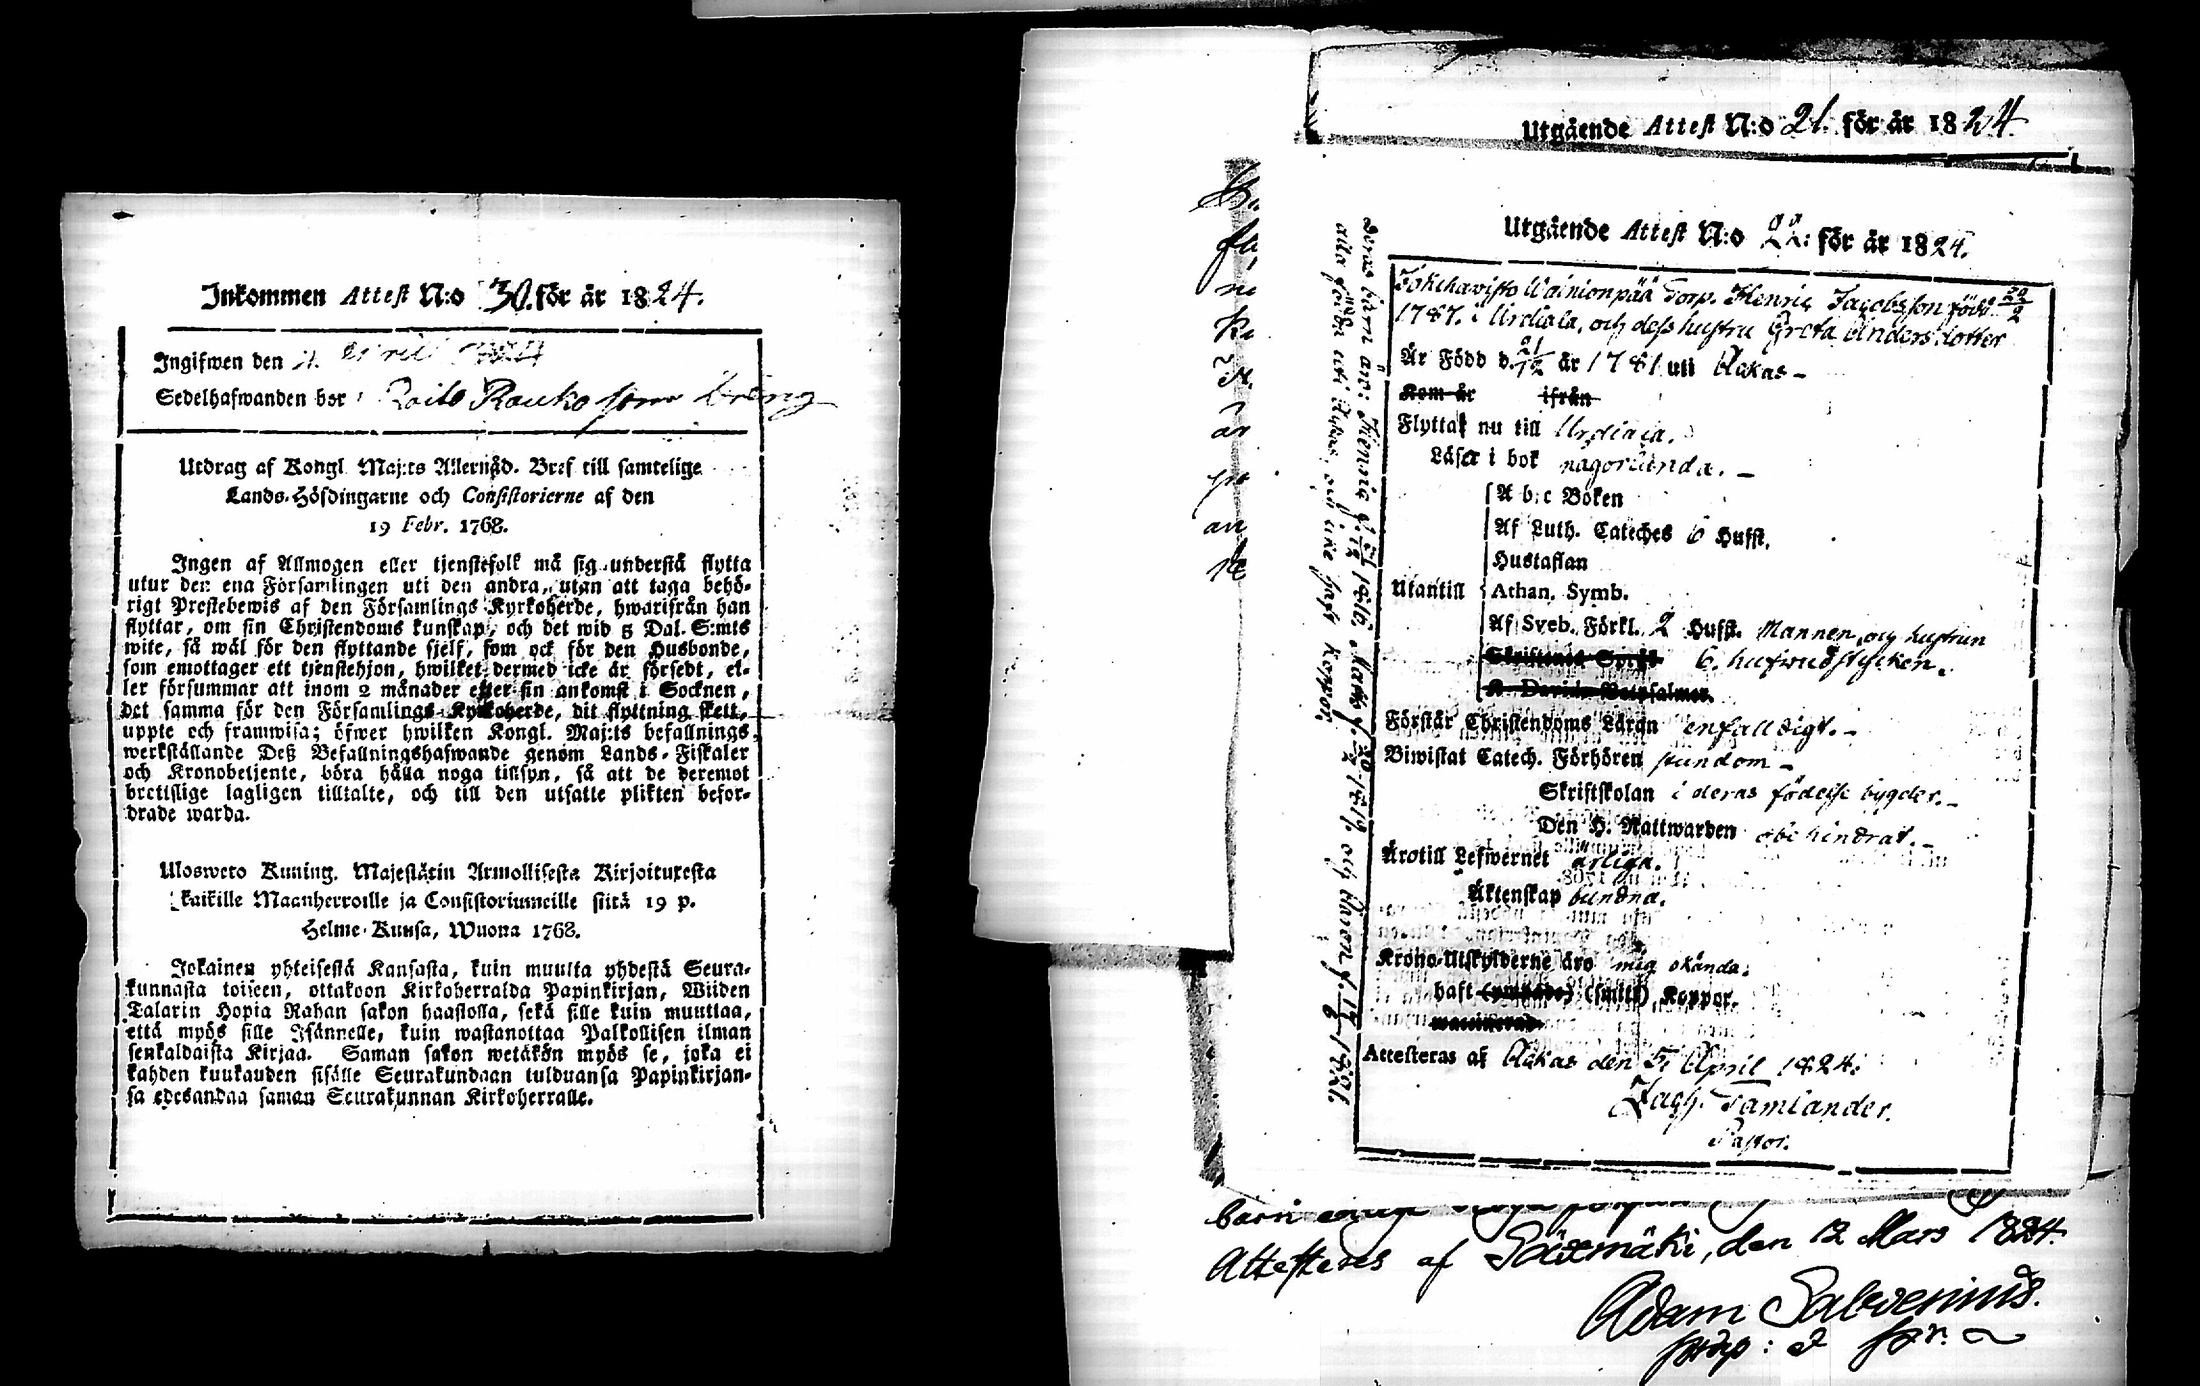 Inkommen Attest N:o 30. för år 1824.
Ingifwen den April 1824
Sedelhafwanden bor Raito Rauko som dräng
Utdrag af Kongl. Maj:ts Allernåd. Bref till samtelige
Lands-Höfdingarne och Consistorierne af den
19 Febr. 1768.
Ingen af Allmogen eller tjenstefolk må sig understå flytta
utur den ena Församlingen uti den andra, utan att taga behö-
rigt Prestebewis af den Församlings Kyrkoherde, hwarifrån han
flyttar, om sin Christendoms kunskap, och det wid 5 Dal. S:mts
wite, så wäl för den flyttande sjelf, som ock för den Husbonde,
som emottager ett tjenstehjon, hwilket dermed icke är försedt, el-
ler försummar att inom 2 månader efter sin ankomst i Socknen,
det samma för den Församlings Kyrkoherde, dit flyttning skett,
uppte och framwisa; öfwer hwilken Kongl. Maj:ts befallnings
werkställande Deß Befallningshafwande genom Lands-Fiskaler
och Kronobetjente, böra hålla noga tillsyn, så att de deremot
brottslige lagligen tilltalte, och till den utsatte plikten befor-
drade warda.
Ulosweto Kuning. Majestätin Armollisesta Kirjoituxesta
kaikille Maanherroille ja Consistoriumeille siitä 19 p.
Helme-Kuusa, Wuona 1768.
Jokainen yhteisestä Kansasta, kuin muutta yhdestä Seura-
kunnasta toiseen, ottakoon Kirkoherralda Papinkirjan, Wiiden
Talarin Hopia Rahan sakon haastolla, sekä sille kuin muuttaa,
että myös sille Isännelle, kuin wastanottaa Palkollisen ilman
senkaldaista Kirjaa. Saman sakon wetäkön myös se, joka ei
kahden kuukauden sisälle Seurakundaan tulduansa Papinkirjan-
sa edesandaa saman Seurakunnan Kirkoherralle.
Utgående Attest N:o 21. för år 1824.
Utgående Attest N:o 22: för år 1824.
Wainionpää Torp. Henric Jacobsson född 20/2
1787. i Urdiala, och dess hustru Greta Andersdotter
Är Född d. 21/12 år 1781 uti Akas
Kom år ifrån
Flyttat nu till Urdiala.
Läser i bok någorlunda.
A b:c Boken
Af Luth. Cateches 6 Hufst.
Hustaflan
Utantill Athan. Symb.
Af Sveb. Förkl. 2 Hufst. Mannen, och hustrun
6. hufwudstycken.
K. Davids Botpsalmer.
Förstår Christendoms Läran enfalldigt.
Biwistat Catech. Förhören stundom
Skriftskolan i deras födelse bygder.
Den H. Nattwarden obehindrat.
Ärotill Lefwernet ärliga.
Äktenskap bundna.
Krono-Utskylderne äro mig okända.
haft (smitt) Koppor.
waccinerad.
Attesteras af Akas den 5 April 1824.
Zach. Tamlander.
Pastor.
deras barn äro: Henric och
alla födda uti Akas, och icke haft Koppor.
barn
Attesteras af Sääxmäki, den 12 Mars 1824.
Adam Salovenius.